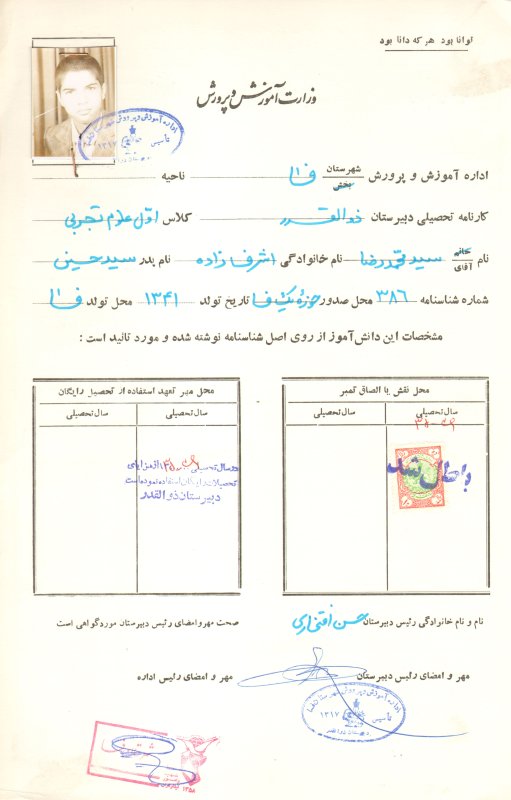 توانا بود هر که دانا بود
وزارت آموزش و پرورش
اداره آموزش و پرورش شهرستان بخش فسا ناحیه
کارنامه تحصیلی دبیرستان ذوالقدر کلاس اول علوم تجربی
نام خانم آقای سید محمد رضا نام خانوادگی اشرف زاده نام پدر سید حسین
شماره شناسنامه ۳۸۶ محل صدور حوزه یک فسا تاریخ تولد ۱۳۴۱ محل تولد فسا
مشخصات این دانش‌آموز از روی اصل شناسنامه نوشته شده و مورد تائید است :
محل نقش یا الصاق تمبر
سال تحصیلی سال تحصیلی
باطل شد
محل مهر تعهد استفاده از تحصیل رایگان
سال تحصیلی سال تحصیلی
در سال تحصیلی از مزایای
تحصیلات رایگان استفاده نموده است
دبیرستان ذوالقدر
نام و نام خانوادگی رئیس دبیرستان حسن افتخاری
صحت مهر و امضای رئیس دبیرستان مورد گواهی است
مهر و امضای رئیس دبیرستان
مهر و امضای رئیس اداره
اداره آموزش و پرورش شهرستان فسا
تاسیس ۱۳۱۷